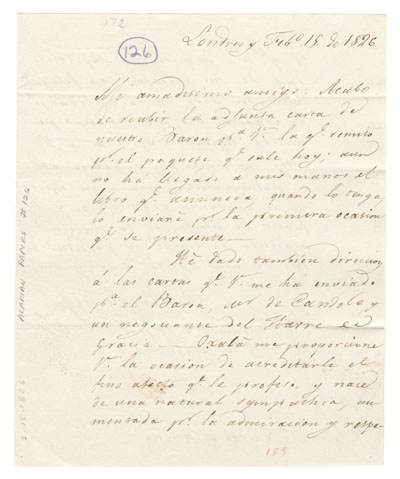 172
126
Londres y Feb.º 15 de 1826
Mi amadisimo amigo: Acabo
de recibir la adjunta carta de
nuestro Baron pª. V. la q.e remito
p.r el paquete q.e sale hoy; aun
no ha llegado á mis manos el
libro q.e anuncia, quando lo tenga
lo enviaré p.r la primera ocasion
q.e se presente.—
Hé dado tambien direccion
á las cartas q.e V. me há enviado
pª. el Baron, Mr de Candole, y
un negociante del Havre de
Gracia — Oxalá me proporcione
V. la ocasion de acreditarle el
fino afecto q.e le profeso, y nace
de una natural sympathia, au
mentada p.r la admiracion y respe
159
ALAMAN PAPERS # 126